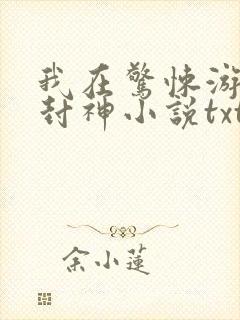 我在驚悚游
封神小說txt
余小蓮